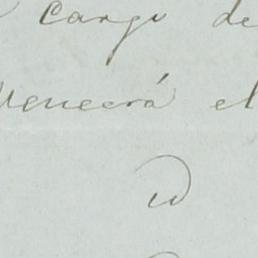 cargo de
Venecerá el
id